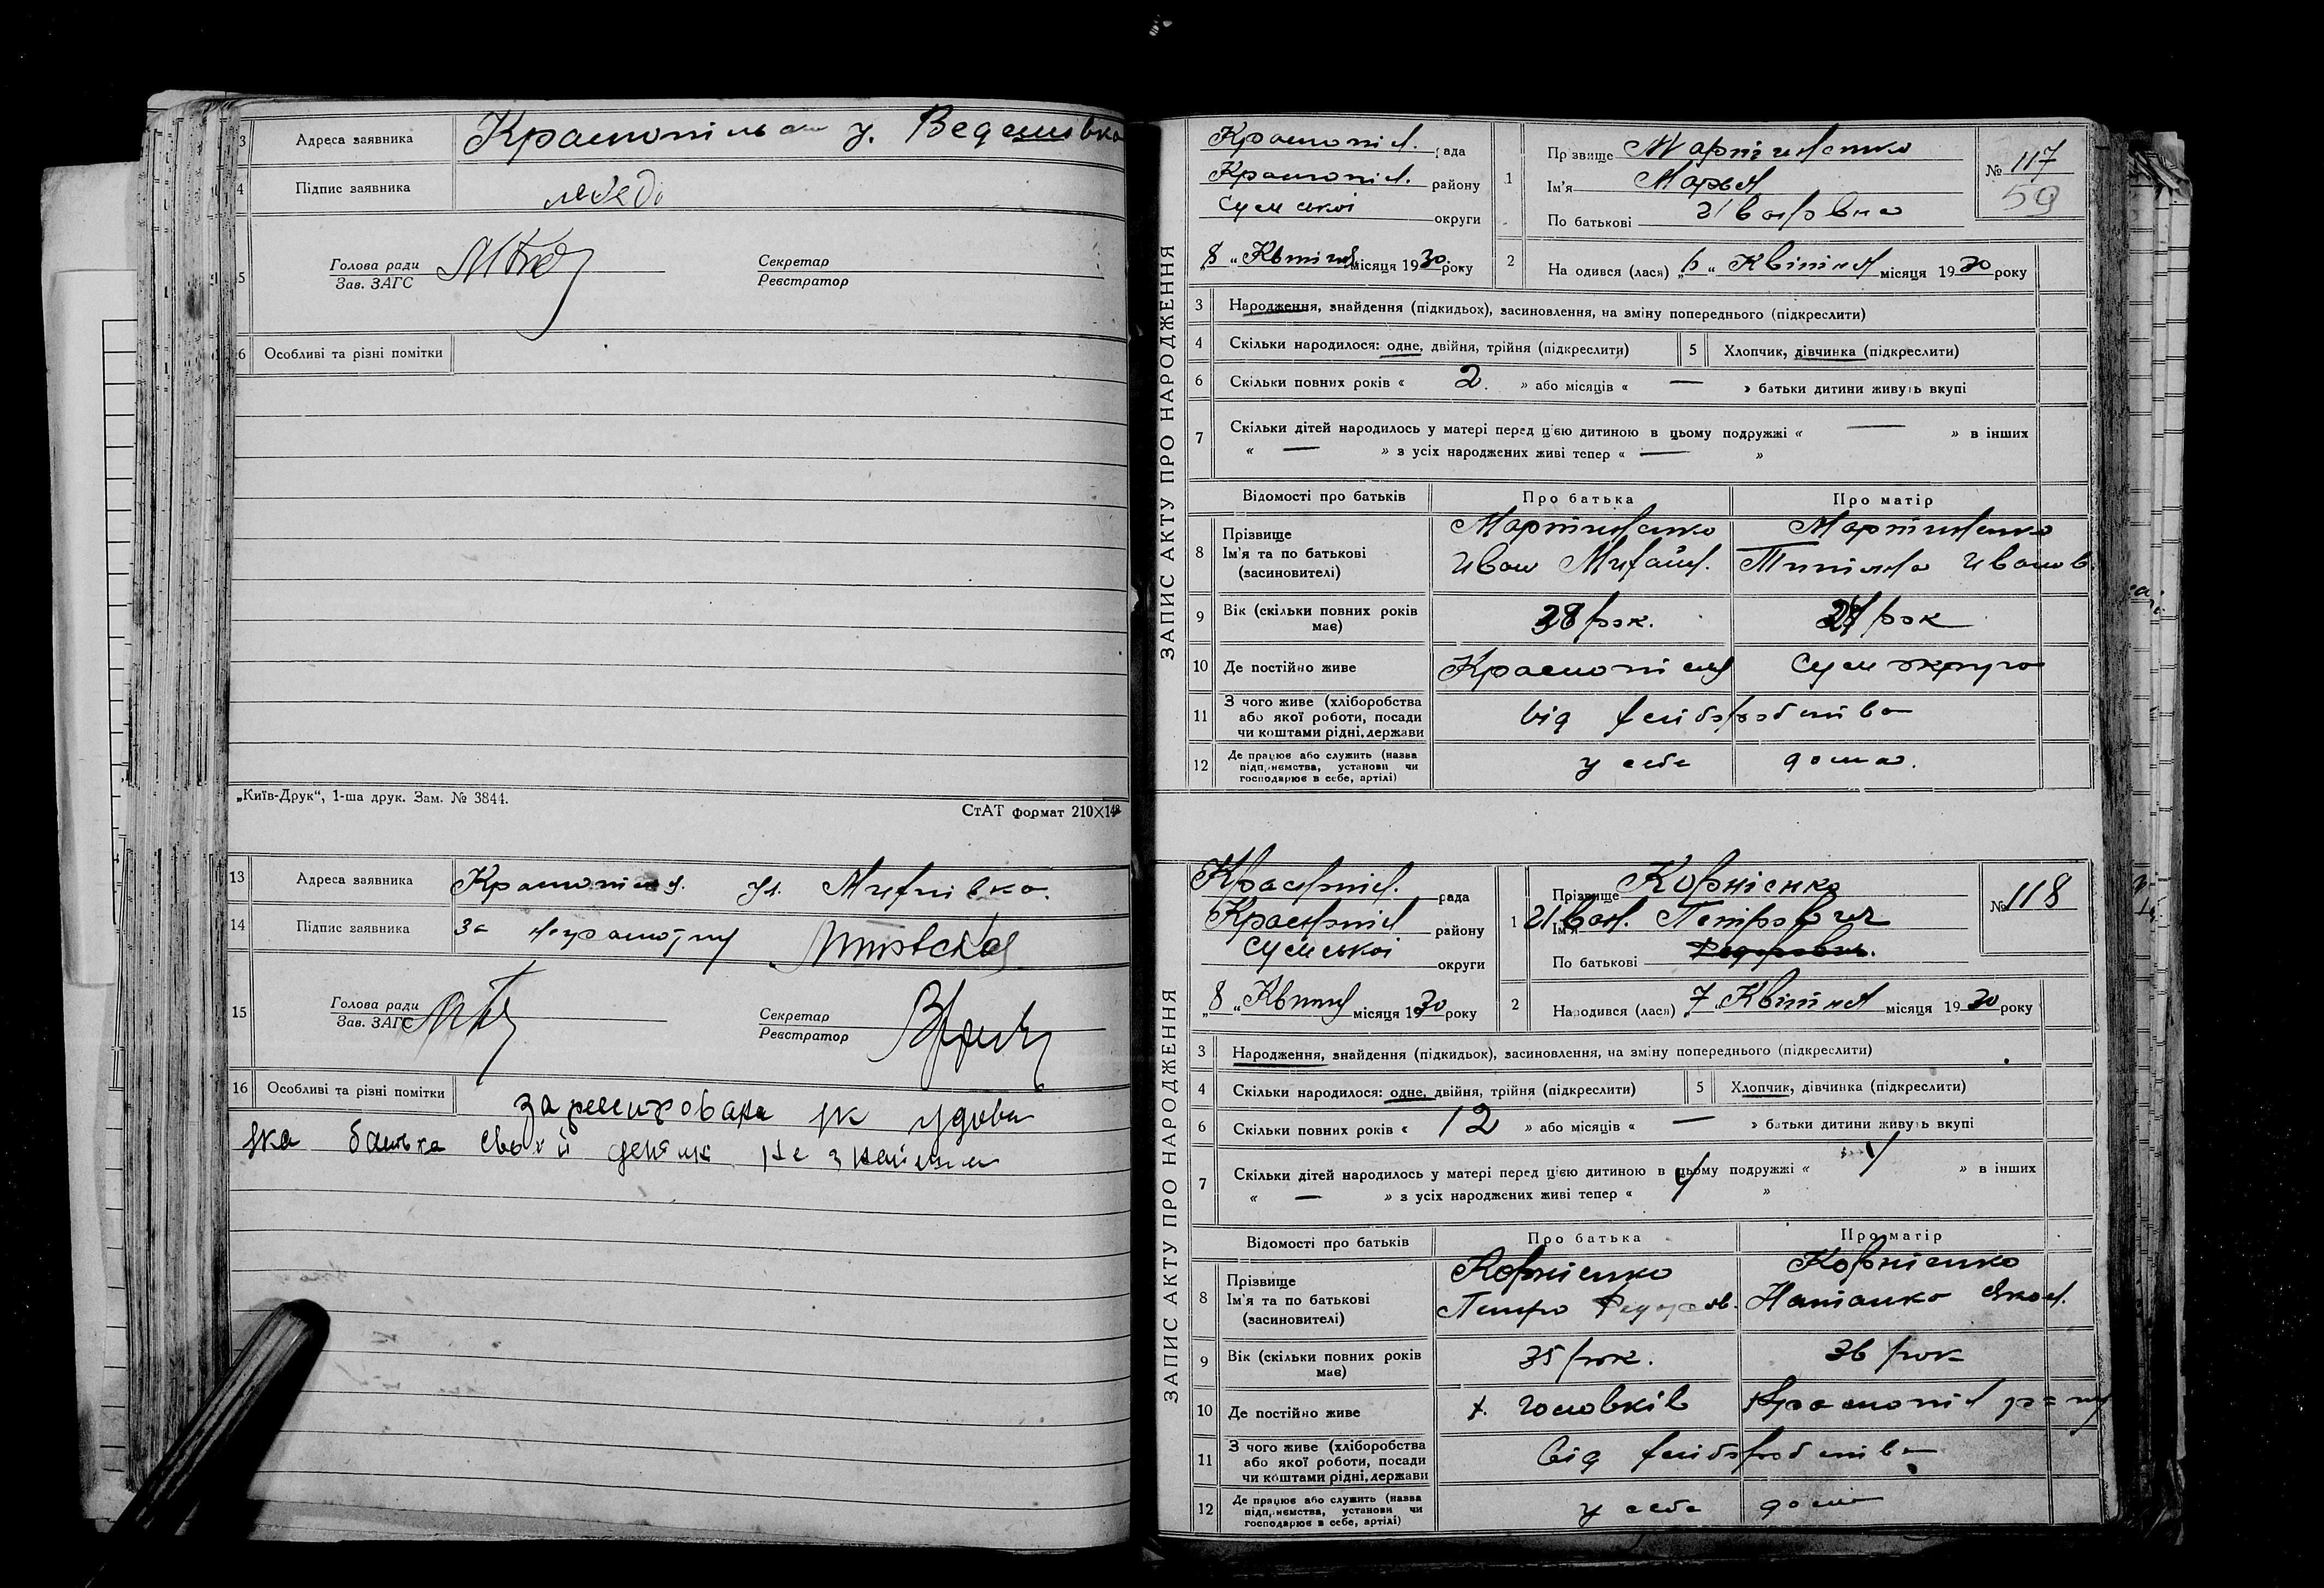 3 Адреса заявника Краснопілля у.
4 Підпис заявника
5 Голова ради
Зав. ЗАГС
Секретар
Реєстратор
6 Особливі та різні помітки
„Київ-Друк“, 1-ша друк. Зам. № 3844.
СтАТ формат 210×148
13 Адреса заявника Краснопілля
14 Підпис заявника За
15 Голова ради
Зав. ЗАГС
Секретар
Реєстратор
16 Особливі та різні помітки
батька своїй
ЗАПИС АКТУ ПРО НАРОДЖЕННЯ
Краснопіл. рада
Краснопіл. району
Сумської округи
„8 “ Квітня місяця 1930 року
1 Прізвище Мартиненко
Ім'я Марья
По батькові Івановна
№ 117
59
2 Народився (лася) „6 “ Квітня місяця 1930 року
3 Народження, знайдення (підкидьок), засиновлення, на зміну попереднього (підкреслити)
4 Скільки народилося: одне, двійня, трійня (підкреслити)
5 Хлопчик, дівчинка (підкреслити)
6 Скільки повних років « 2. » або місяців « — » батьки дитини живуть вкупі
7 Скільки дітей народилось у матері перед цією дитиною в цьому подружжі « — » в інших
« — » з усіх народжених живі тепер « — »
Відомості про батьків Про батька Про матір
8 Прізвище Мартиненко Мартиненко
Ім'я та по батькові Иван Михайл. Иванов.
(засиновителі)
9 Вік (скільки повних років 28 рок. рок
має)
10 Де постійно живе Краснопілля Сум округа
11 З чого живе (хліборобства
або якої роботи, посади від хліборобства
чи коштами рідні, держави
12 Де працює або служить (назва
підприємства, установи чи у себе дома.
господарює в себе, артілі)
ЗАПИС АКТУ ПРО НАРОДЖЕННЯ
Краснопіл. рада
Краснопіл району
Сумської округи
„8 “ Квітня місяця 1930 року
1 Прізвище Корнієнко
Ім'я Иван. Петрович
По батькові Федорович.
№ 118
2 Народився (лася) „7 “ Квітня місяця 1930 року
3 Народження, знайдення (підкидьок), засиновлення, на зміну попереднього (підкреслити)
4 Скільки народилося: одне, двійня, трійня (підкреслити)
5 Хлопчик, дівчинка (підкреслити)
6 Скільки повних років « 12 » або місяців « — » батьки дитини живуть вкупі
7 Скільки дітей народилось у матері перед цією дитиною в цьому подружжі « » в інших
« — » з усіх народжених живі тепер « »
Відомості про батьків Про батька Про матір
8 Прізвище Корнієнко Корнієнко
Ім'я та по батькові Петро Федоров. Яков.
(засиновителі)
9 Вік (скільки повних років 35 рок. 36 рок
має)
10 Де постійно живе х. Краснопіл рану
11 З чого живе (хліборобства
або якої роботи, посади від хліборобства
чи коштами рідні, держави
12 Де працює або служить (назва
підприємства, установи чи у себе дома
господарює в себе, артілі)